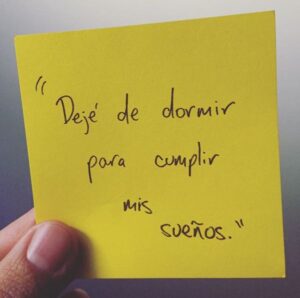 "Dejé de dormir
para cumplir
mis
sueños."